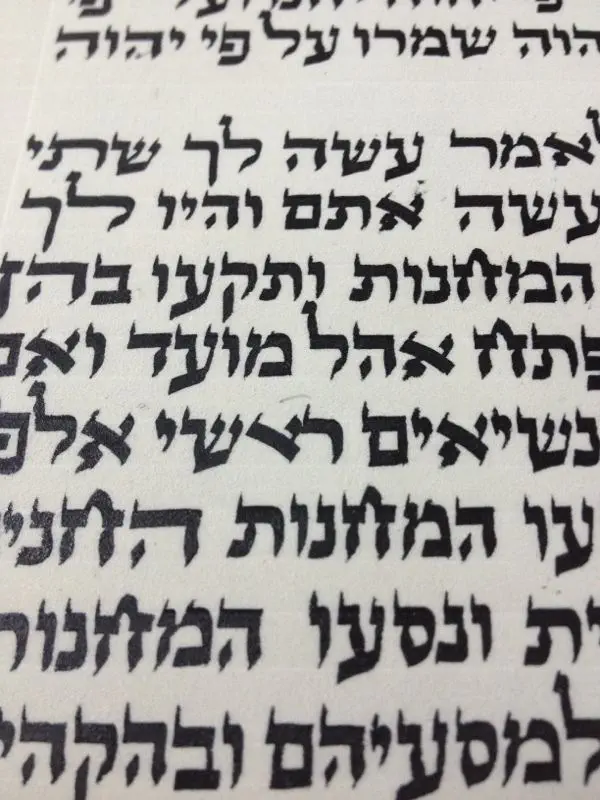 הוה שמרו על פי יהוה
לאמר עשה לך שתי
עשה אתם והיו לך
המחנות ותקעו בהן
פתח אהל מועד ואם
נשיאים ראשי אלפ
עו המחנות החני
ית ונסעו המחנות
למסעיהם ובהקהי